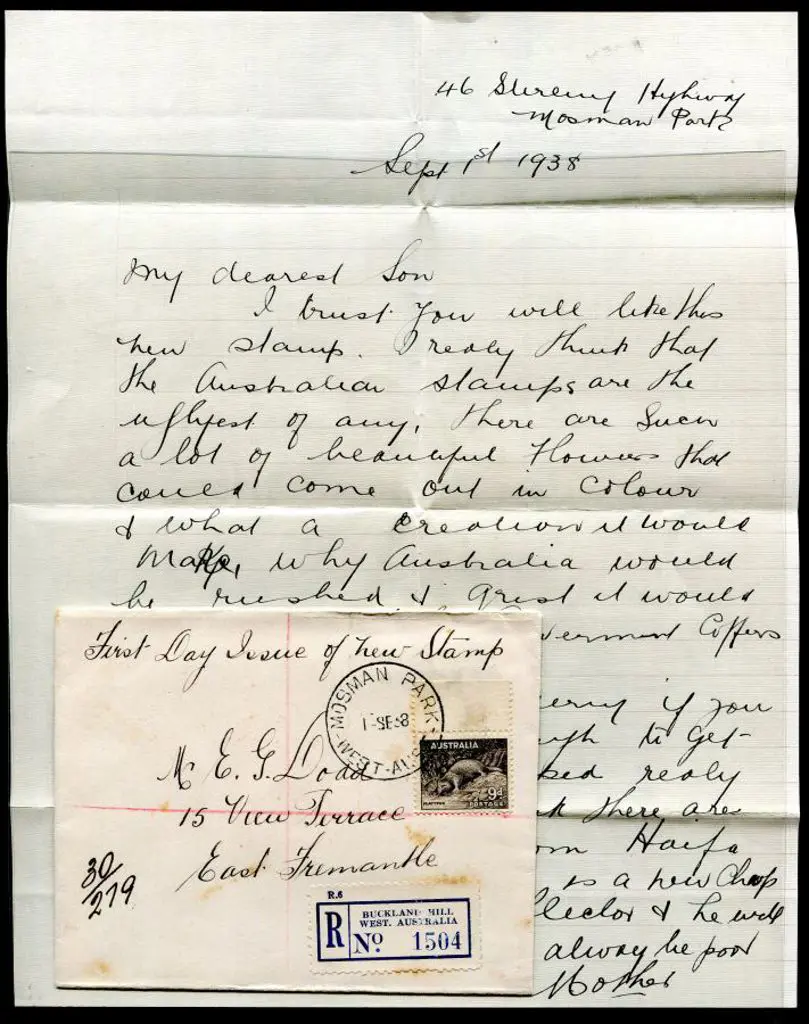 46 Stireing Highway
Mosman Park
Sept 1st 1938
My dearest Son
I trust you will like this
new stamp. I realy think that
the Australian stamps are the
uglyest of any, there are such
a lot of beautiful Flowers that
could come out in colour
& what a creation it would
Make, why Australia would
be rushed & Grist it would
verment Coffers
if you
to Get
sed realy
there are
om Haifa
is a new Chap
llector & he will
alway be poor
Mother
First Day Issue of new Stamp
MOSMAN PARK
1-SE-38
WEST-AUST
AUSTRALIA
9d
PLATYPUS POSTAGE
Mr E. G. Dodd
15 View Terrace
East Fremantle
30/279
R.6
R
BUCKLAND HILL
WEST. AUSTRALIA
No 1504